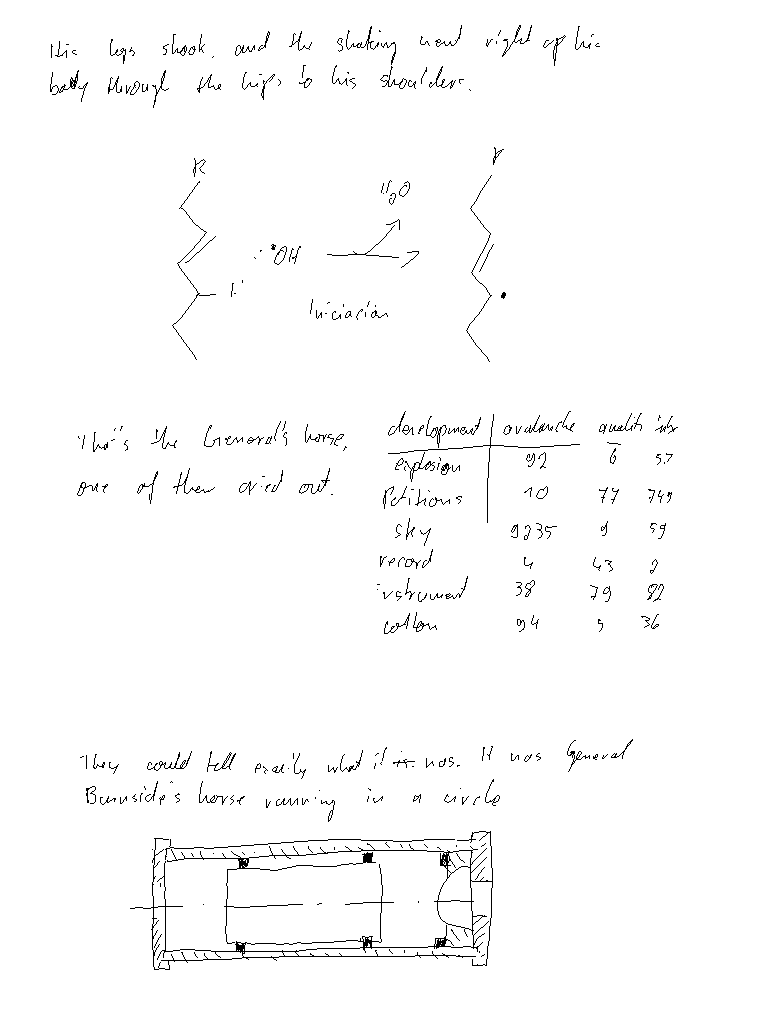 His legs shook, and the shaking went right up his
body through the hips to his shoulders.
R
R
H₂O
•OH
H
Iniciación
That's the General's horse,
one of them cried out.
development avalanche quality
explosion 92 6 57
Petitions 10 77 749
sky 9235 9 59
record 4 43 2
instrument 38 79 82
cotton 94 5 36
They could tell easily what it is was. It was General
Burnside's horse running in a circle